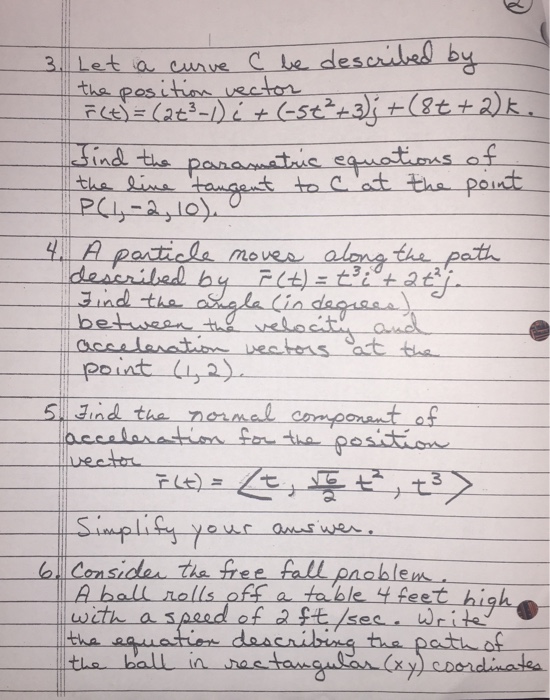 2
3. Let a curve C be described by
the position vector
r̄(t) = (2t³-1)i + (-5t²+3)j + (8t+2)k.
Find the parametric equations of
the line tangent to C at the point
P(1,-2,10).
4. A particle moves along the path
described by r̄(t) = t³i + 2t²j.
Find the angle (in degrees)
between the velocity and
acceleration vectors at the
point (1,2).
5. Find the normal component of
acceleration for the position
vector
r̄(t) = <t, √6/2 t², t³>
Simplify your answer.
6. Consider the free fall problem.
A ball rolls off a table 4 feet high
with a speed of 2 ft/sec. Write
the equation describing the path of
the ball in rectangular (xy) coordinates